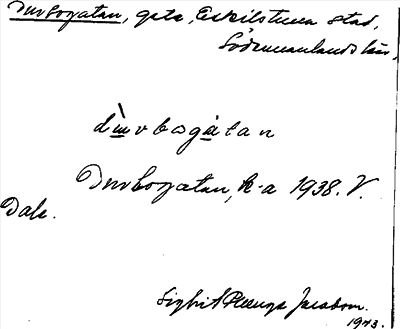 Durbogatan, gata, Eskilstuna stad,
Södermanlands län.
Durbogatan, k-a 1938. V.
Dale.
Sigbrit Plænge Jacobson.
1973.